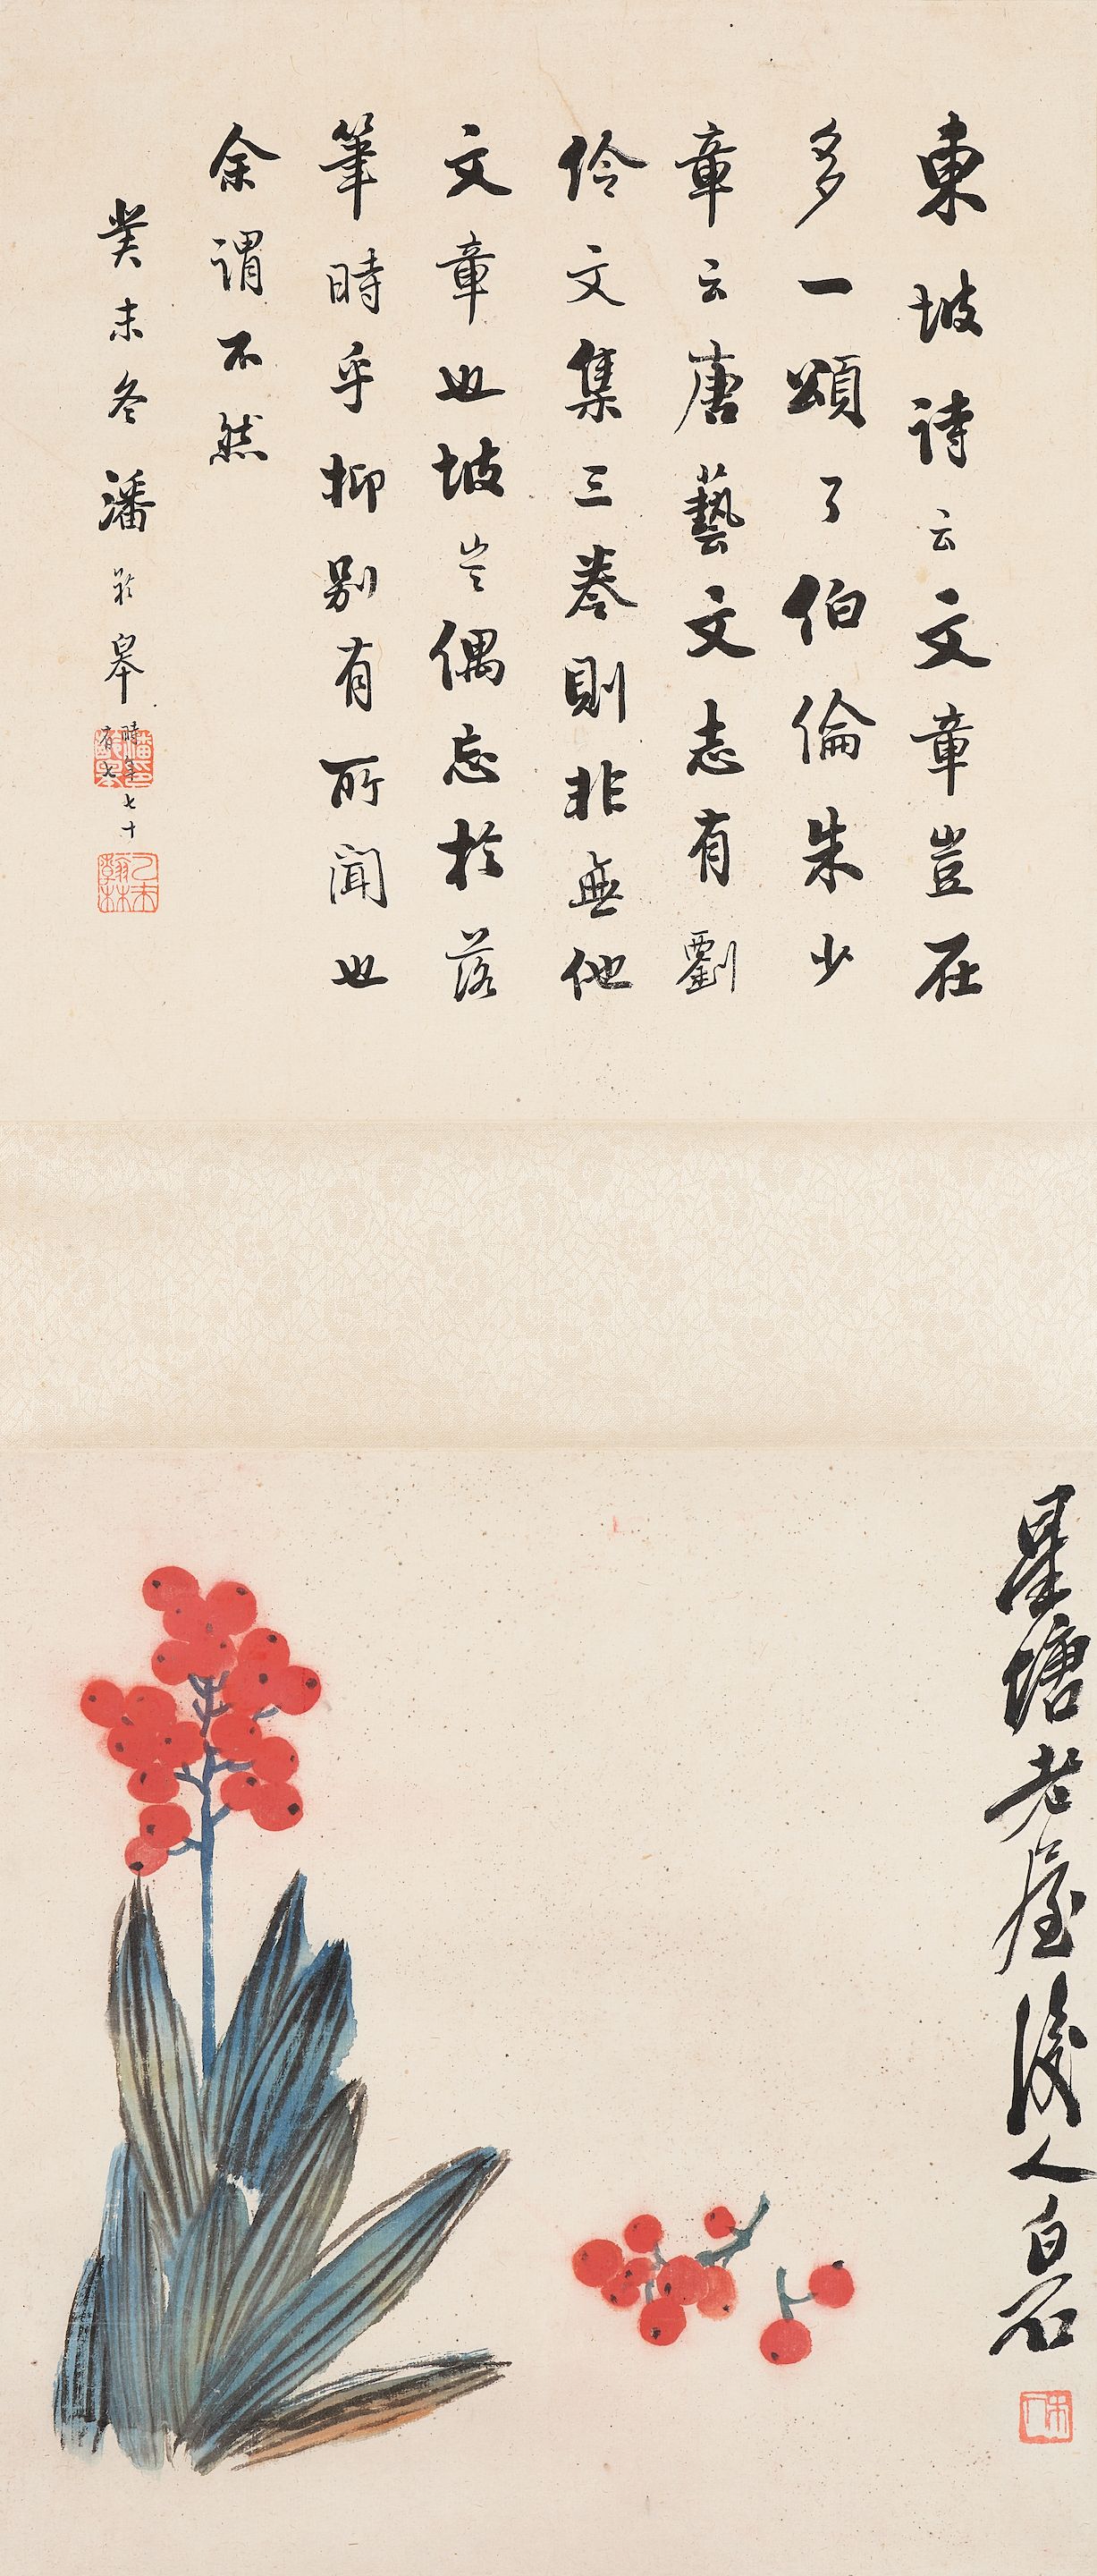 東坡詩云文章豈在
多一頌了伯倫朱少
章云唐藝文志有劉
伶文集三卷則非無他
文章也坡豈偶忘於落
筆時乎抑別有所聞也
余謂不然
癸未冬潘齡皋時年七十有七
潘印齡皋
乙未翰林
星塘老屋後人白石
木人